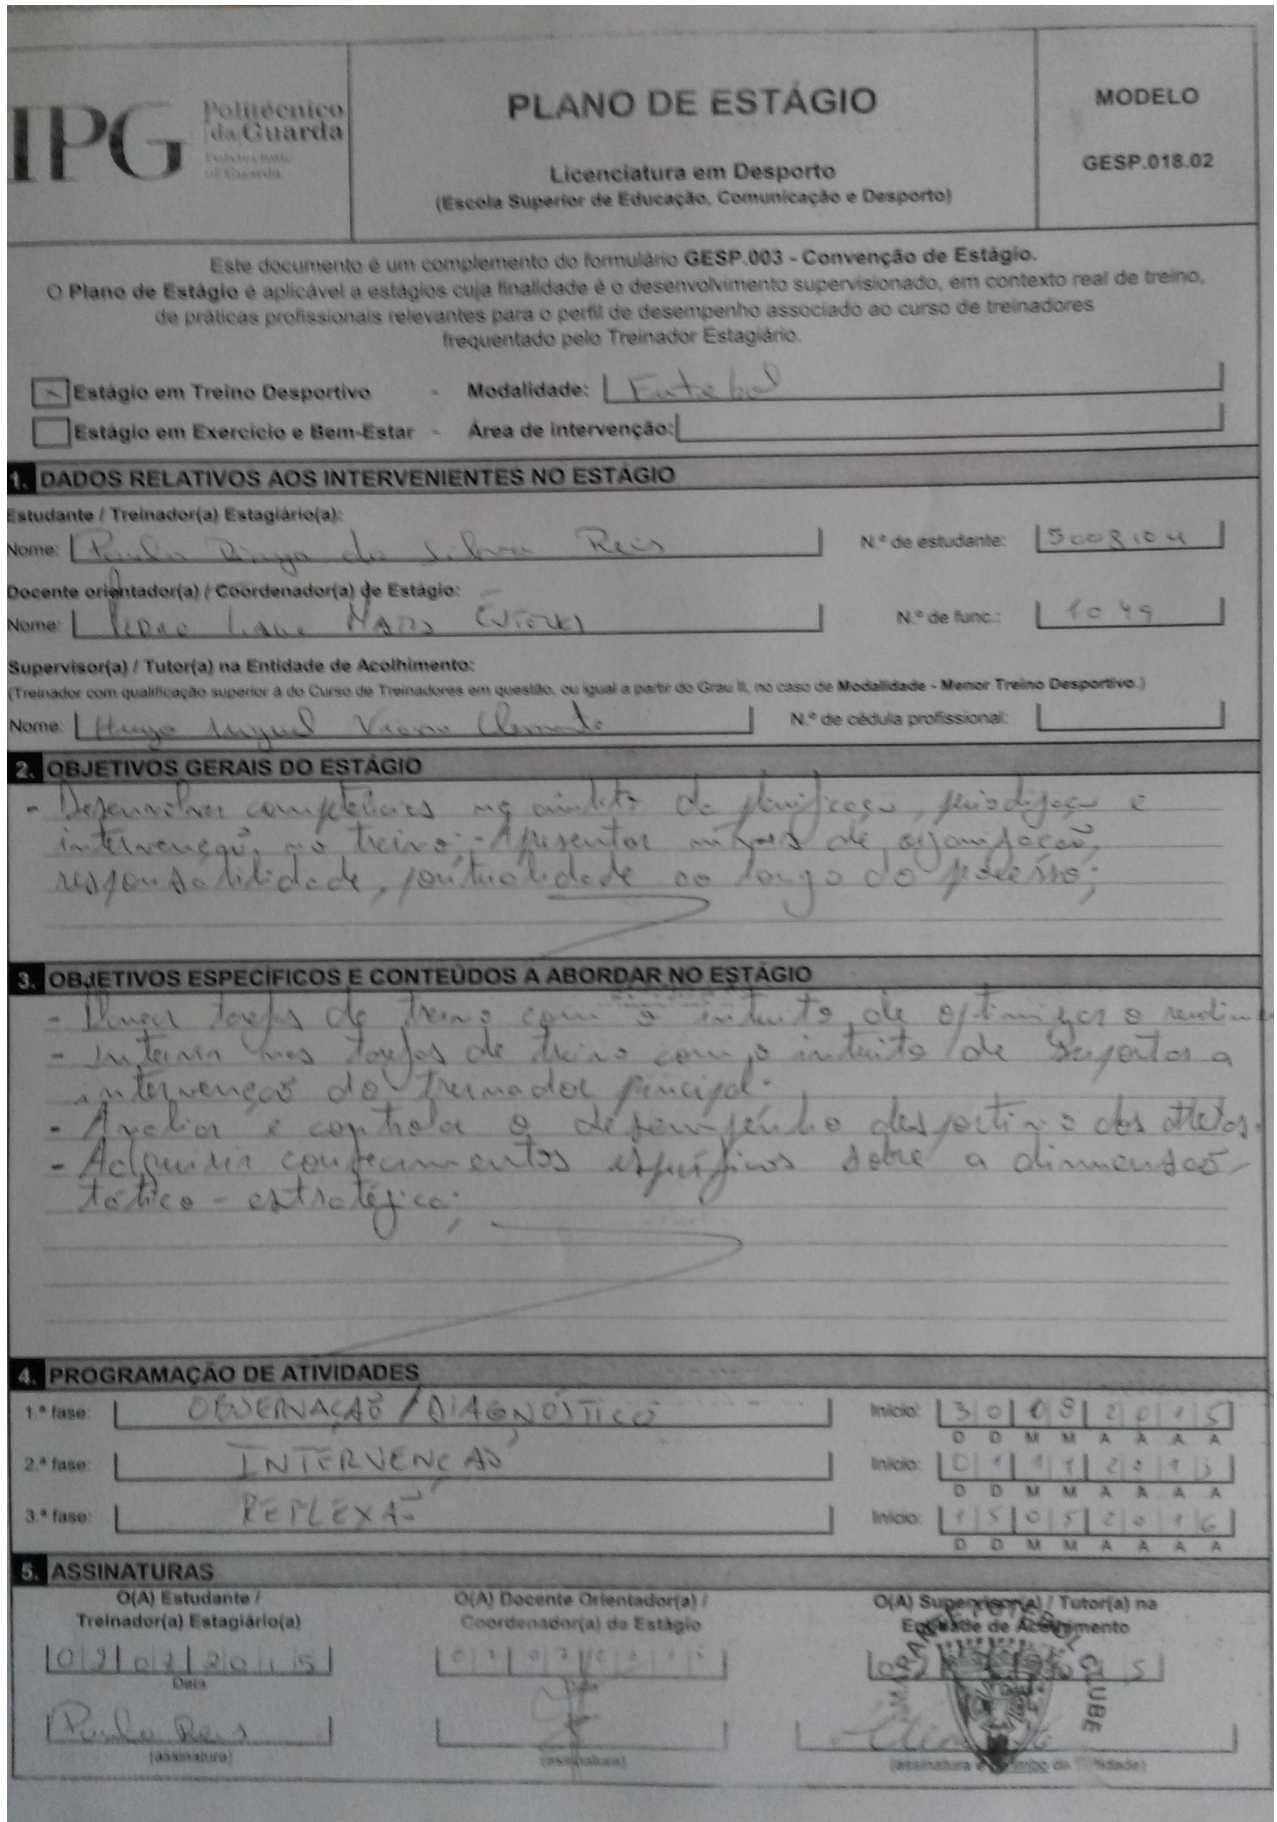 IPG
Politécnico
da Guarda
Polytechnic
of Guarda
PLANO DE ESTÁGIO
Licenciatura em Desporto
(Escola Superior de Educação, Comunicação e Desporto)
MODELO
GESP.018.02
Este documento é um complemento do formulário GESP.003 - Convenção de Estágio.
O Plano de Estágio é aplicável a estágios cuja finalidade é o desenvolvimento supervisionado, em contexto real de treino,
de práticas profissionais relevantes para o perfil de desempenho associado ao curso de treinadores
frequentado pelo Treinador Estagiário.
Estágio em Treino Desportivo - Modalidade: Futebol
Estágio em Exercício e Bem-Estar - Área de intervenção:
1. DADOS RELATIVOS AOS INTERVENIENTES NO ESTÁGIO
Estudante / Treinador(a) Estagiário(a):
Nome: da Silva Reis N.º de estudante:
Docente orientador(a) / Coordenador(a) de Estágio:
Nome: Pedro N.º de func.: 1049
Supervisor(a) / Tutor(a) na Entidade de Acolhimento:
(Treinador com qualificação superior à do Curso de Treinadores em questão, ou igual a partir do Grau II, no caso de Modalidade - Menor Treino Desportivo.)
Nome: Hugo Miguel Clemente N.º de cédula profissional:
2. OBJETIVOS GERAIS DO ESTÁGIO
- Desenvolver competências no âmbito da planificação, periodização e
intervenção no treino; - Apresentar de organização,
responsabilidade, pontualidade ao longo do processo;
3. OBJETIVOS ESPECÍFICOS E CONTEÚDOS A ABORDAR NO ESTÁGIO
- tarefas de treino com o intuito de optimizar o
- Intervir nas tarefas de treino com o intuito de suportar a
intervenção do treinador principal.
- Avaliar e controlar o desempenho desportivo dos atletas.
- Adquirir conhecimentos específicos sobre a dimensão
tático - estratégica;
4. PROGRAMAÇÃO DE ATIVIDADES
1.ª fase: OBSERVAÇÃO / DIAGNÓSTICO Início: 30 08 2015
D D M M A A A A
2.ª fase: INTERVENÇÃO Início: 01 11 2015
D D M M A A A A
3.ª fase: REFLEXÃO Início: 15 05 2016
D D M M A A A A
5. ASSINATURAS
O(A) Estudante /
Treinador(a) Estagiário(a)
Data
(assinatura)
O(A) Docente Orientador(a) /
Coordenador(a) de Estágio
Data
(assinatura)
O(A) Supervisor(a) / Tutor(a) na
Entidade de Acolhimento
FUTEBOL CLUBE
(assinatura e carimbo da Entidade)